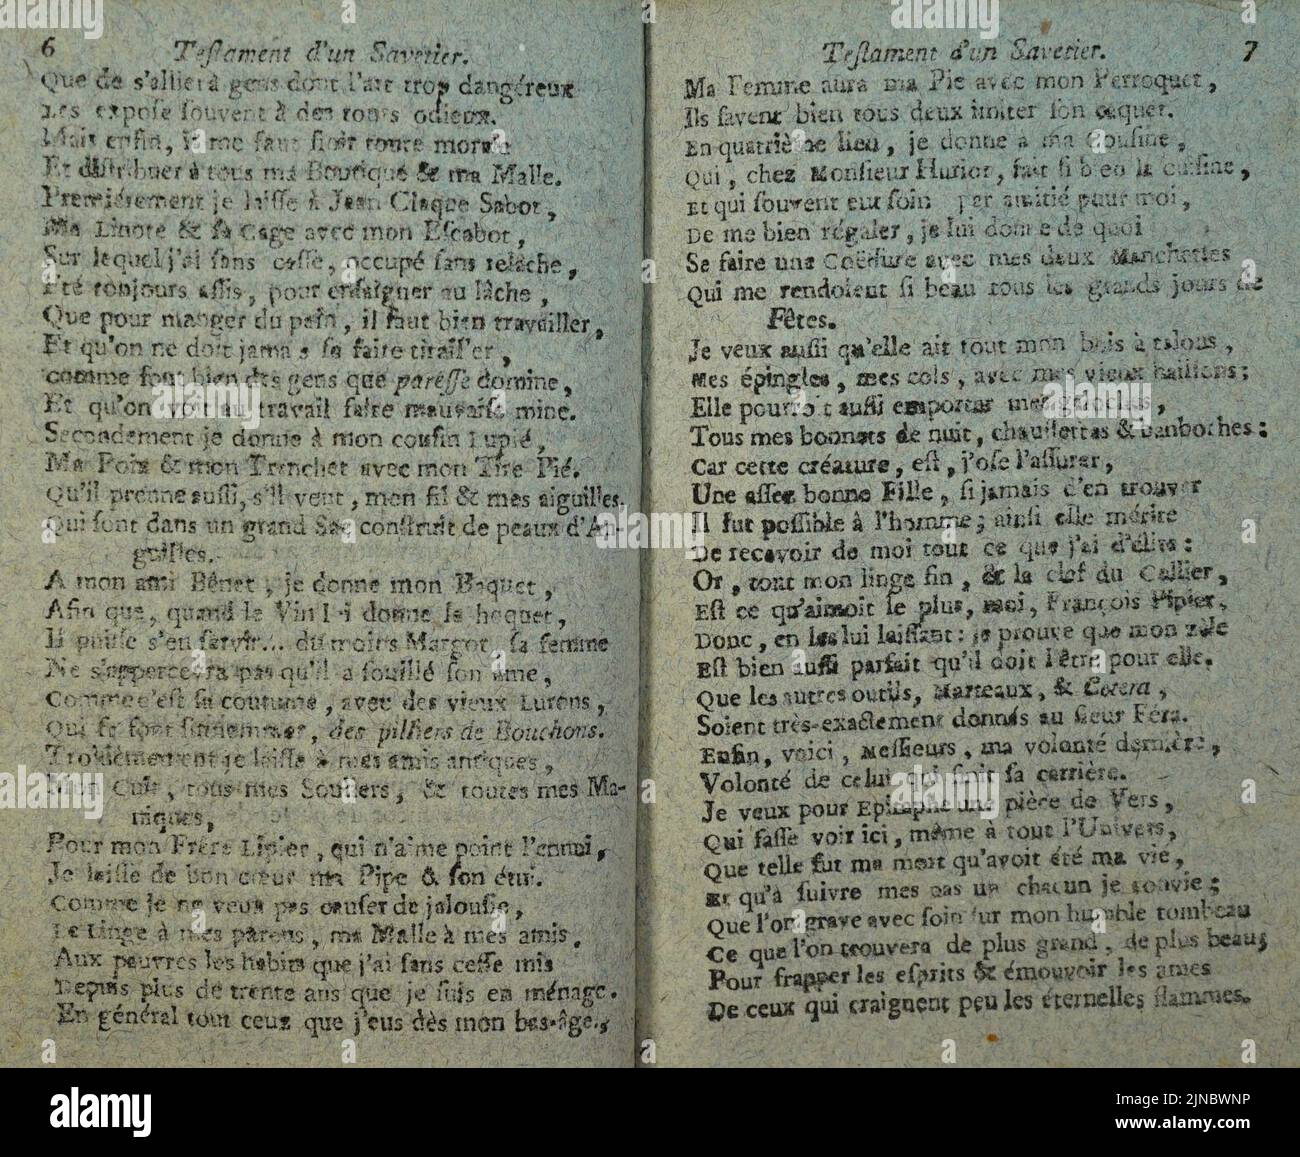 6 Teſtament d'un Savetier.
Que de s'allier à gens dont l'art trop dangéreux
Les expoſe ſouvent à des tours odieux.
Mais enfin, il me faut finir toute morale
Et diſtribuer à tous ma Boutique & ma Malle.
Premiérement je laiſſe à Jean Claque Sabot,
Ma Linote & ſa Cage avec mon Eſcabot,
Sur lequel j'ai ſans ceſſe, occupé ſans relâche,
Été toujours aſſis, pour enſeigner au lâche,
Que pour manger du pain, il faut bien travailler,
Et qu'on ne doit jamais ſe faire tirailler,
comme font bien des gens que pareſſe domine,
Et qu'on voit au travail faire mauvaiſe mine.
Secondement je donne à mon couſin Lupié,
Ma Poix & mon Trenchet avec mon Tire Pié.
Qu'il prenne auſſi, s'il veut, mon fil & mes aiguilles.
Qui ſont dans un grand Sac conſtruit de peaux d'An-
guilles.
A mon ami Bénet, je donne mon Baquet,
Afin que, quand le Vin lui donne le hoquet,
Il puiſſe s'en ſervir... du moins Margot, ſa femme
Ne s'appercevra pas qu'il a fouillé ſon ame,
Comme c'eſt ſa coutume, avec des vieux Lurons,
Qui ſe ſont ſurnommés, des pilliers de Bouchons.
Troiſiémement je laiſſe à mes amis antiques,
Mon Cuir, tous mes Souliers, & toutes mes Ma-
niques,
Pour mon Frére Lipier, qui n'aime point l'ennui,
Je laiſſe de bon cœur ma Pipe & ſon étui.
Comme je ne veux pas cauſer de jalouſie,
Le Linge à mes parens, ma Malle à mes amis,
Aux pauvres les habits que j'ai ſans ceſſe mis
Depuis plus de trente ans que je ſuis en ménage.
En général tout ceux que j'eus dès mon bas-âge,
Teſtament d'un Savetier. 7
Ma Femme aura ma Pie avec mon Perroquet,
Ils ſavent bien tous deux imiter ſon caquet.
En quatriéme lieu, je donne à ma Couſine,
Qui, chez Monſieur Hurior, fait ſi bien la cuiſine,
Et qui ſouvent eut ſoin par amitié pour moi,
De me bien régaler, je lui donne de quoi
Se faire une Coëffure avec mes deux Manchettes
Qui me rendoient ſi beau tous les grands jours de
Fêtes.
Je veux auſſi qu'elle ait tout mon bois à talons,
Mes épingles, mes cols, avec mes vieux haillons;
Elle pourroit auſſi emporter mes galoches,
Tous mes bonnets de nuit, chauſſettes & banboches:
Car cette créature, eſt, j'oſe l'aſſurer,
Une aſſez bonne Fille, ſi jamais d'en trouver
Il fut poſſible à l'homme; ainſi elle mérite
De recevoir de moi tout ce que j'ai d'élite:
Or, tout mon linge fin, & la clef du Cellier,
Eſt ce qu'aimoit le plus, moi, François Pipier,
Donc, en les lui laiſſant: je prouve que mon zéle
Eſt bien auſſi parfait qu'il doit l'être pour elle.
Que les autres outils, Marteaux, & Cœtera,
Soient très-exactement donnés au ſieur Féra.
Enfin, voici, Meſſieurs, ma volonté derniére,
Volonté de celui qui finit ſa carrière.
Je veux pour Epitaphe une pièce de Vers,
Qui faſſe voir ici, même à tout l'Univers,
Que telle fut ma mort qu'avoit été ma vie,
Et qu'à ſuivre mes pas un chacun je convie;
Que l'on grave avec ſoin ſur mon humble tombeau
Ce que l'on trouvera de plus grand, de plus beau,
Pour frapper les eſprits & émouvoir les ames
De ceux qui craignent peu les éternelles flammes.
alamy
Image ID: 2JNBWNP
www.alamy.com